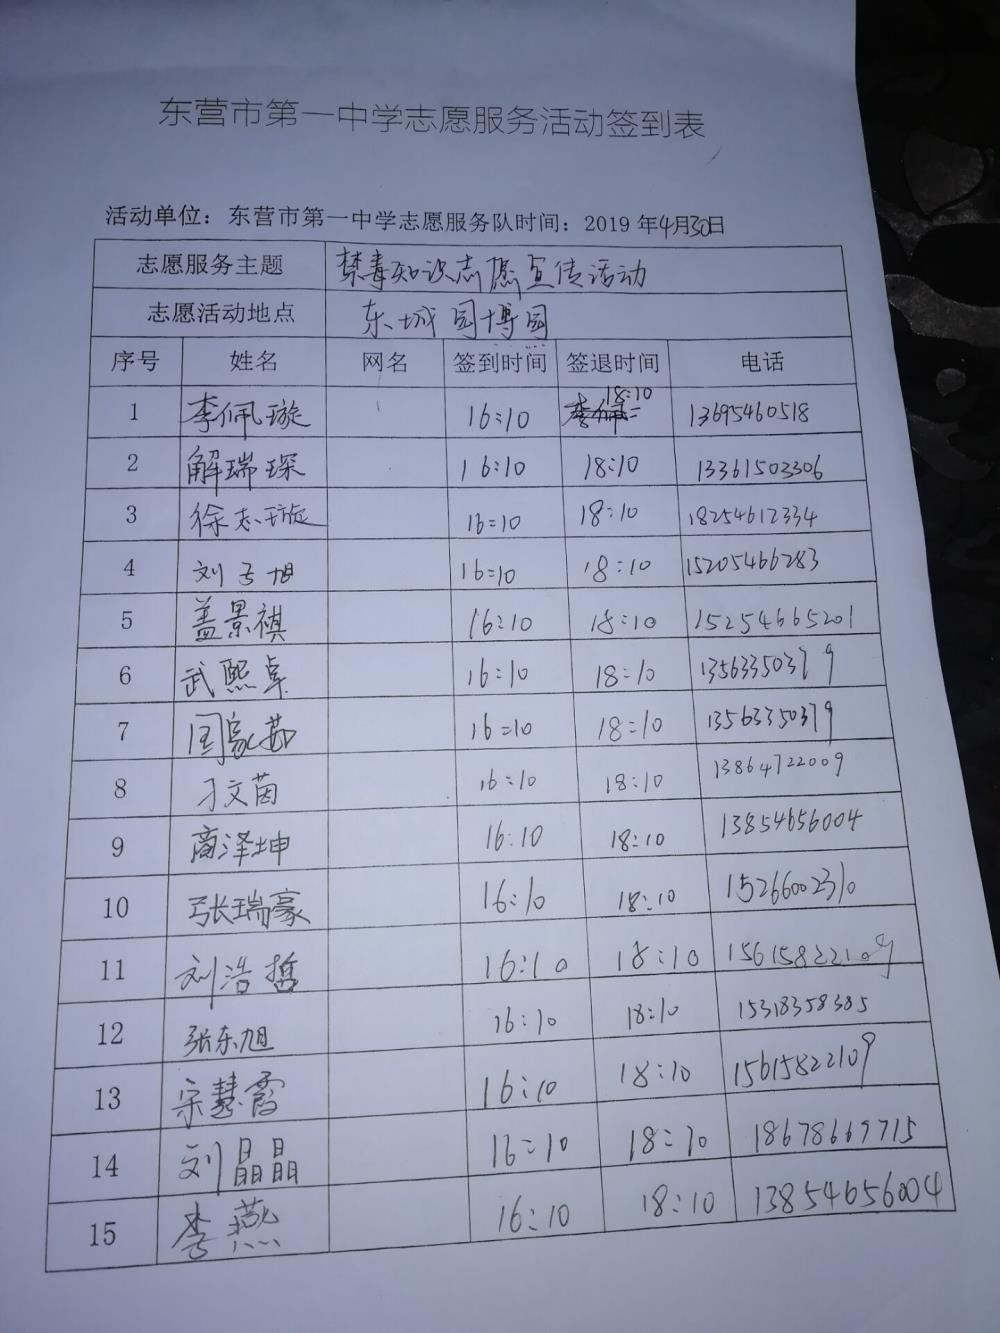 东营市第一中学志愿服务活动签到表
活动单位：东营市第一中学志愿服务队时间：2019年4月30日
志愿服务主题 禁毒知识志愿宣传活动
志愿活动地点 东城园博园
序号 姓名 网名 签到时间 签退时间 电话
1 李佩璇 16:10 18:10 13695460518
2 解瑞琛 16:10 18:10 13361503306
3 徐志璇 16:10 18:10 18254612334
4 刘子旭 16:10 18:10 15205466283
5 盖景祺 16:10 18:10 15254665201
6 武熙卓 16:10 18:10 13563350379
7 18:10 16:10 13563350379
8 刁文茵 16:10 18:10 13864722009
9 商泽坤 16:10 18:10 13854656004
10 张瑞豪 16:10 18:10 15266002310
11 刘浩哲 16:10 18:10 15615822109
12 张东旭 16:10 18:10 15318358385
13 宋慧霞 16:10 18:10 15615822109
14 刘晶晶 16:10 18:10 18678669715
15 李燕 16:10 18:10 13854656004